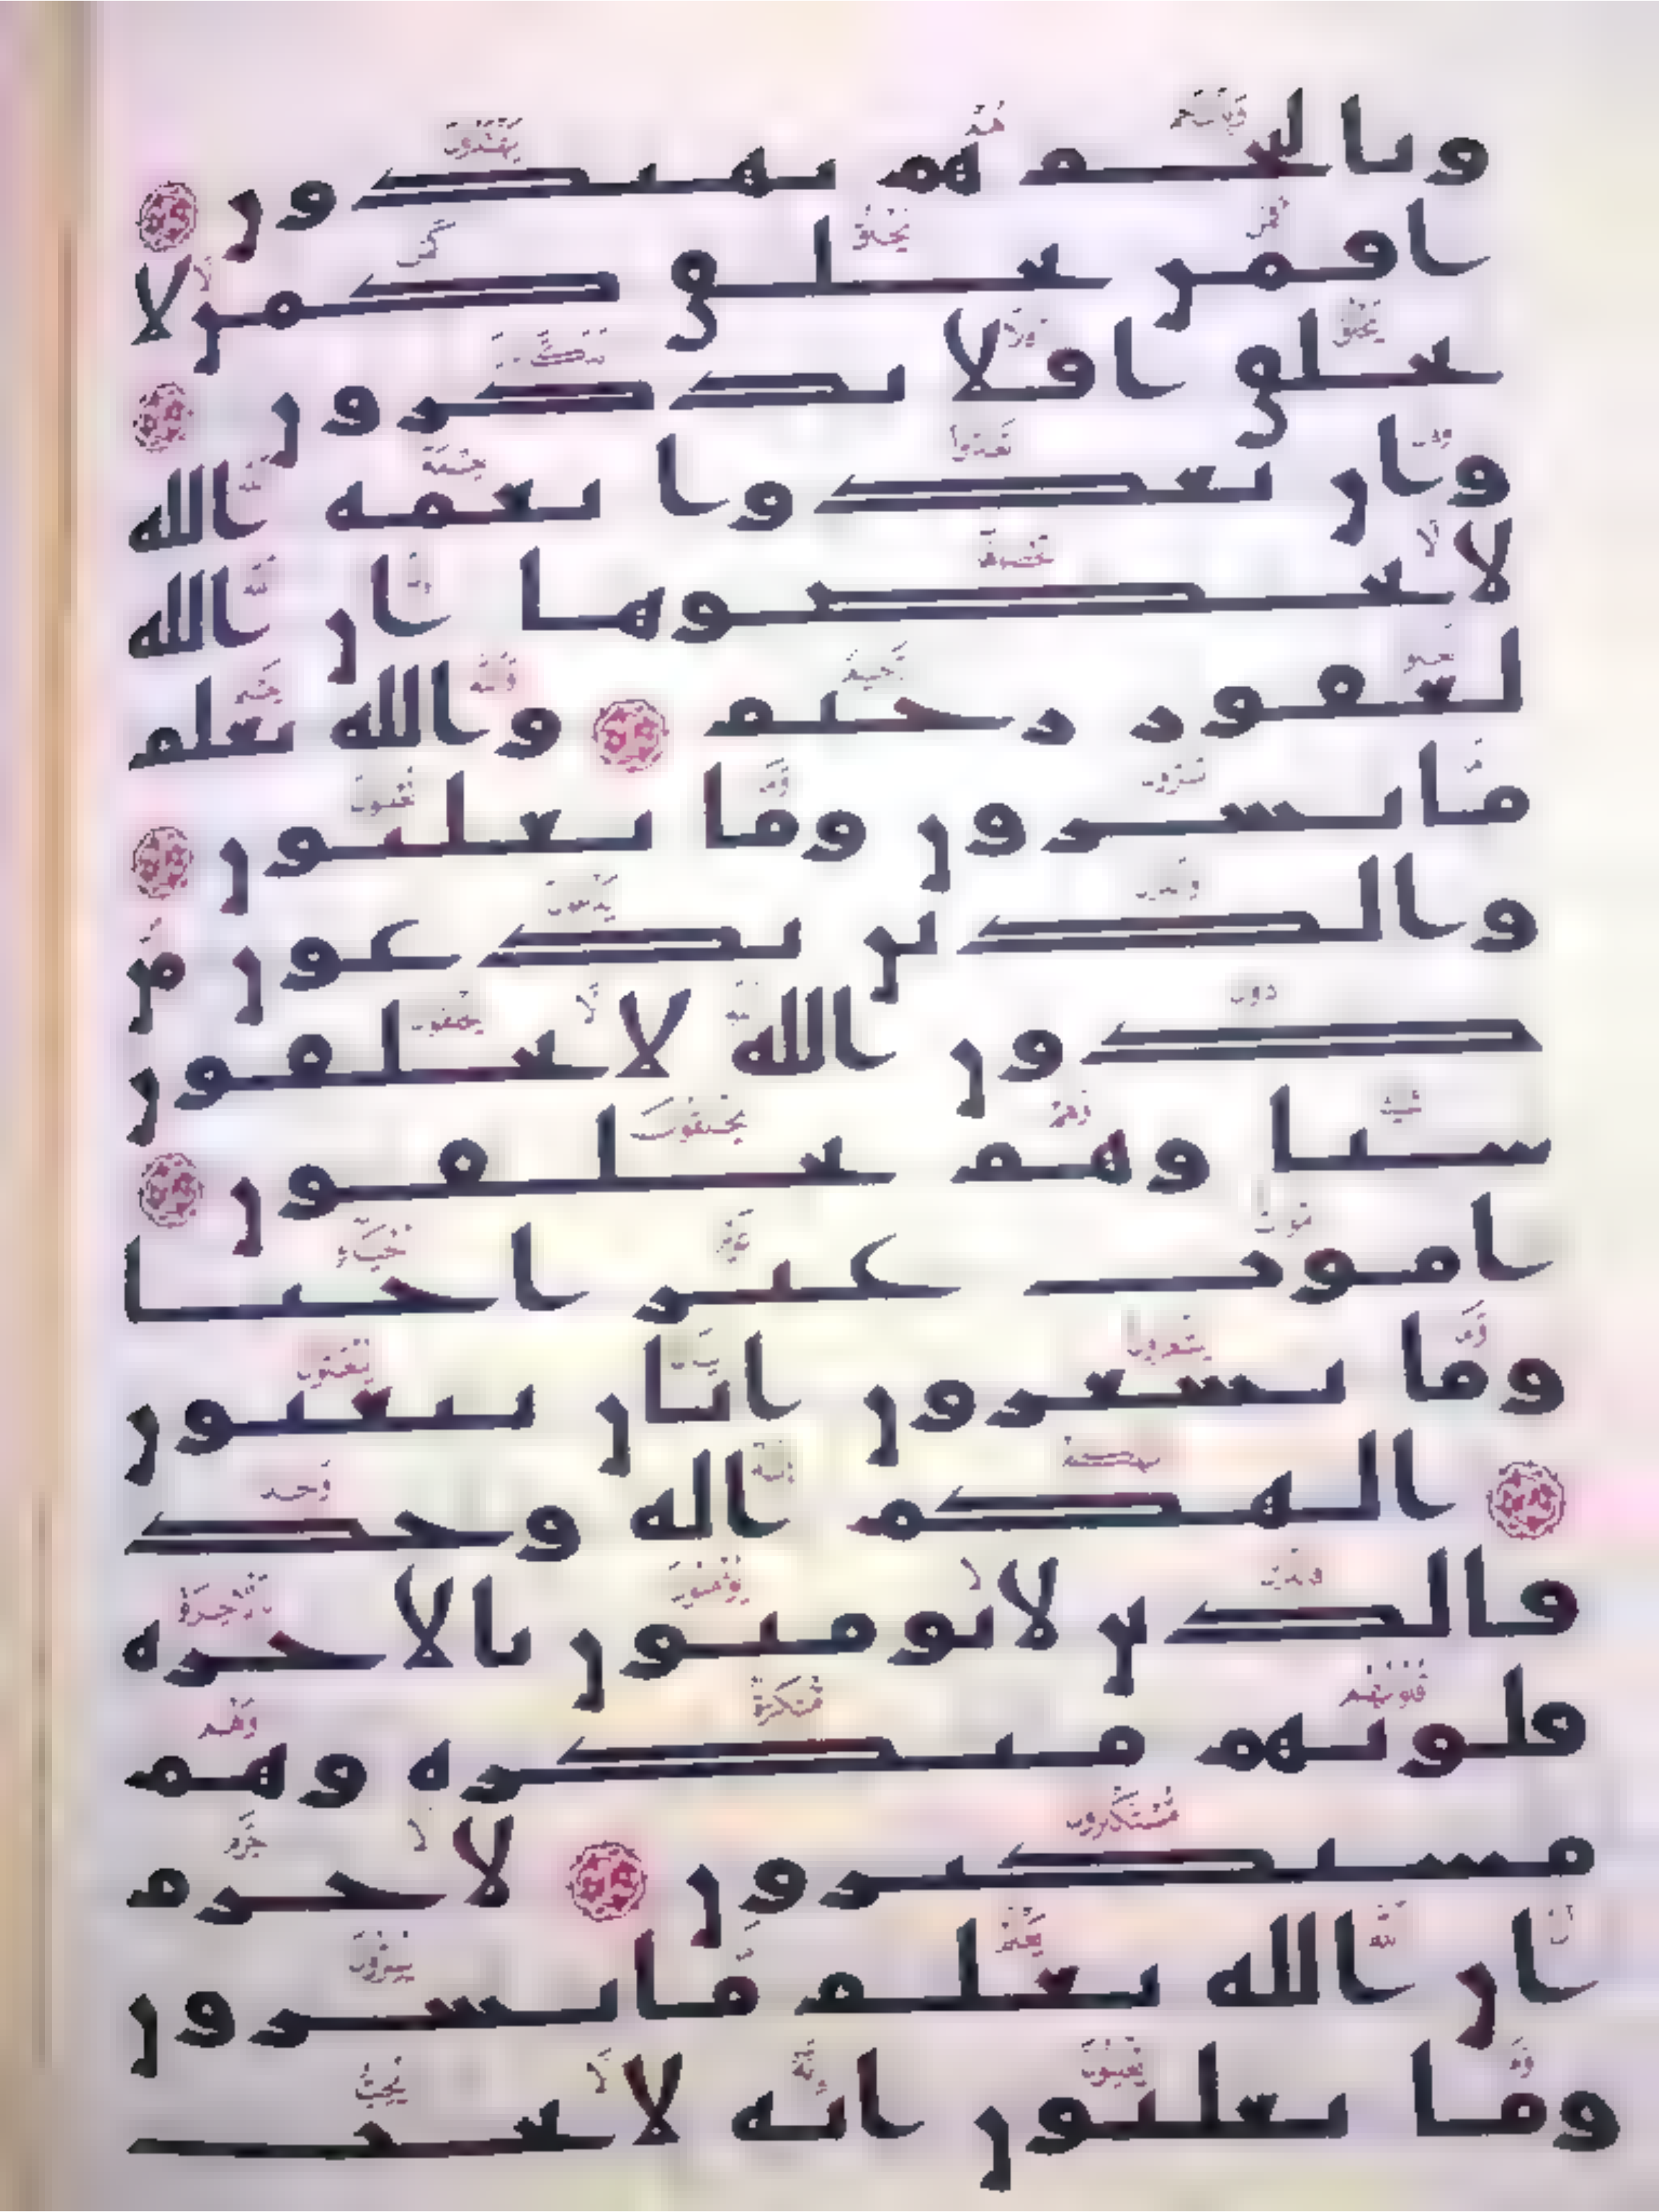 وبالنجم هم يهتدون
افمن يخلق كمن لا
يخلق افلا تذكرون
وان تعدوا نعمه الله
لا تحصوها ان الله
لغفور رحيم والله يعلم
ما تسرون وما تعلنون
والذين يدعون من
دون الله لا يخلقون
شيا وهم يخلقون
اموت غير احيا
وما يشعرون ايان يبعثون
الهكم اله وحد
فالذين لا يومنون بالاخره
قلوبهم منكره وهم
مستكبرون لا جرم
ان الله يعلم ما يسرون
وما يعلنون انه لا يحب